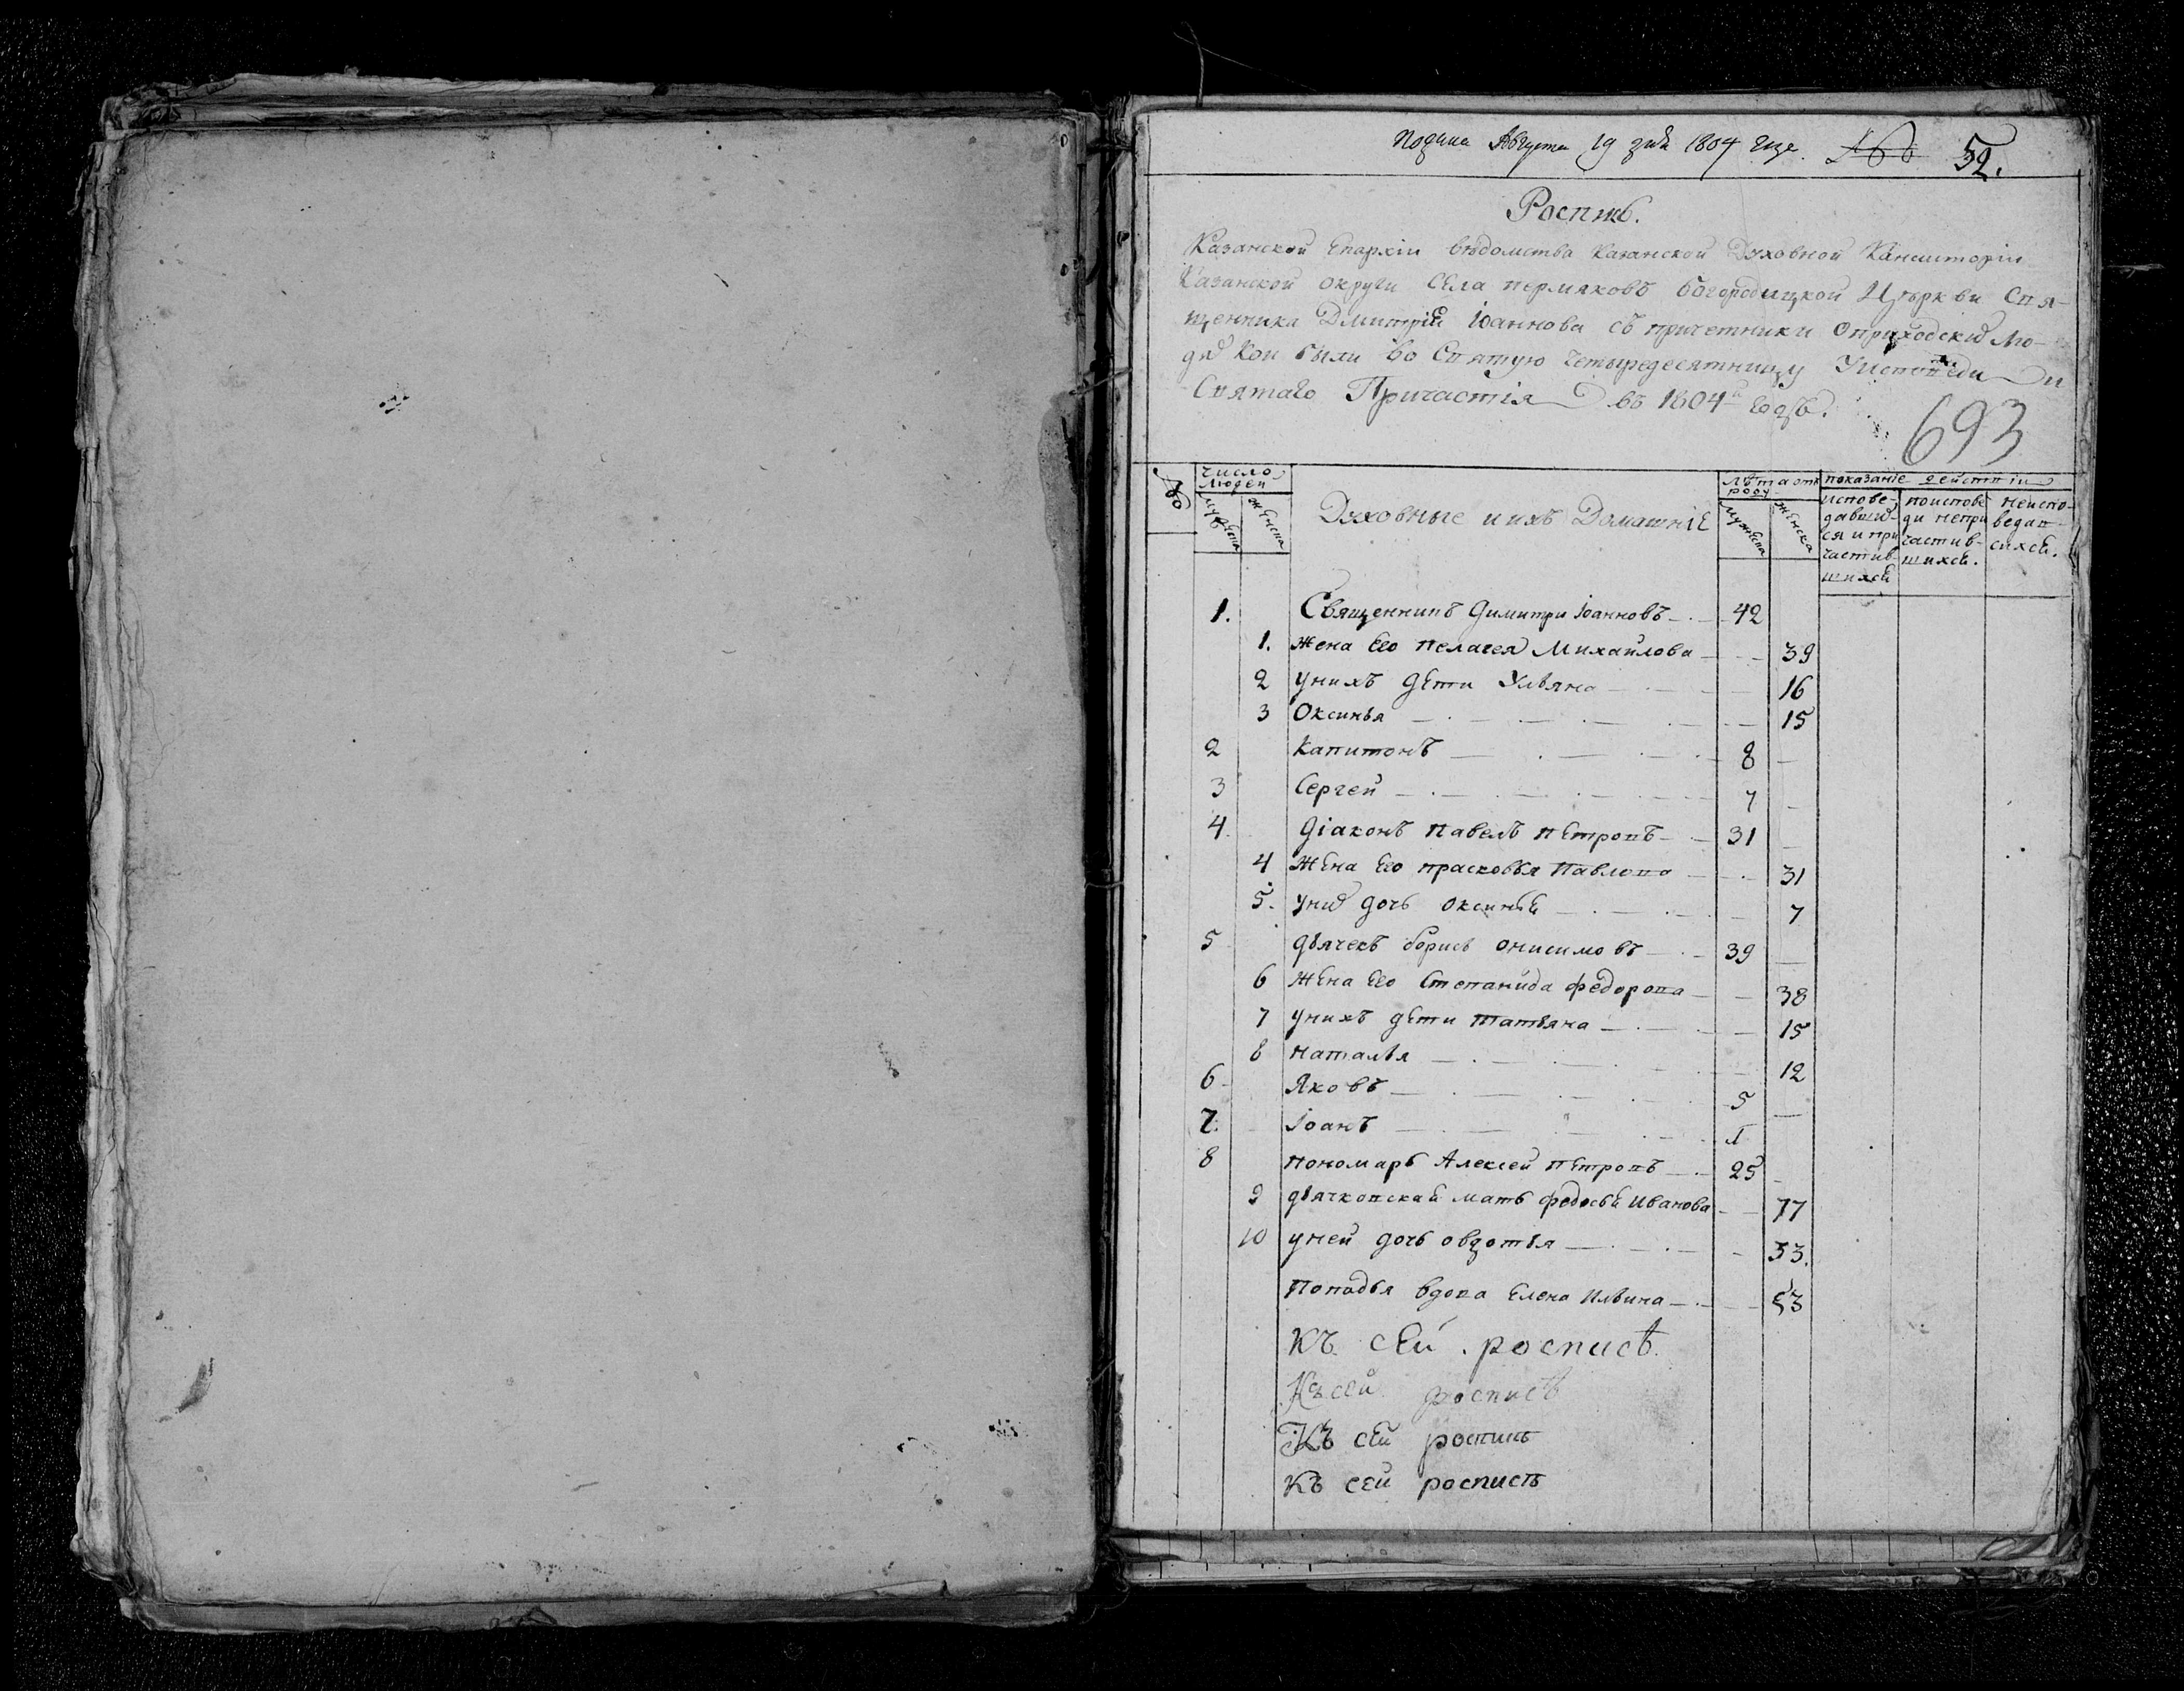 Подана Августа 19 дня 1804 года. 52.
Роспись.
Казанской Епархіи вѣдомства Казанской Духовной Консисторіи
Казанской округи Села пермяковъ богородицкой Церкви Свя-
щенника Дмитрія Іоаннова съ причетники оприходскихъ лю-
дяхъ кои были во Святую четыредесятницу Уисповѣди и
Святаго Причастія въ 1804м годѣ.
693
№ число людей Духовные иихъ Домашніе лѣта отъ роду показаніе действіи
мужеска женска мужеска женска испове-давших-ся и при-частив-шихся поисповеди непри-частив-шихся. неиспо-ведав-шихся.
1. Священникъ Димитри Іоанновъ 42
1. жена Его Пелагея Михайлова 39
2 унихъ дети Ульяна 16
3 Оксинья 15
2 Капитонъ 8
3 Сергей 7
4. Діаконъ Павелъ Петровъ 31
4 Жена Его прасковья Павлова 31
5. унихъ дочь оксинья 7
5 дьячекъ борисъ онисимовъ 39
6 Жена Его Степанида федорова 38
7 унихъ дети татьяна 15
8 наталья 12
6 Яковъ 5
7. Іоанъ 1
8 пономарь Алексей Петровъ 25
9 дьячковская мать федосья Иванова 77
10 уней дочь овдотья 33.
Попадья вдова Елена Ильина 53
Къ сей росписѣ
Къ сей росписѣ
Къ сей росписѣ
Къ сей росписѣ